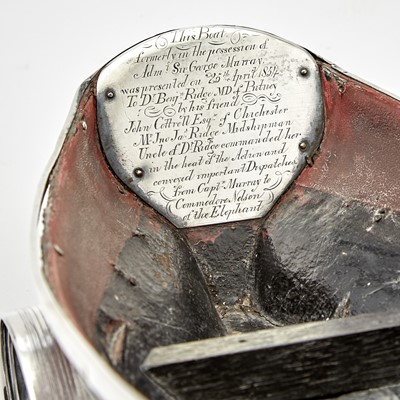 This Boat
formerly in the possession of
Adm.l Sir George Murray.
was presented on 25th April 1834
To Dr. Benj.n Ridge MD. of Putney
by his friend
John Cottrell Esq.r of Chichester
Mr. Jno. Jas. Ridge Midshipman
Uncle of Dr. Ridge commanded her
in the heat of the Action and
conveyed important Dispatches
from Capt.n Murray to
Commodore Nelson
of the Elephant